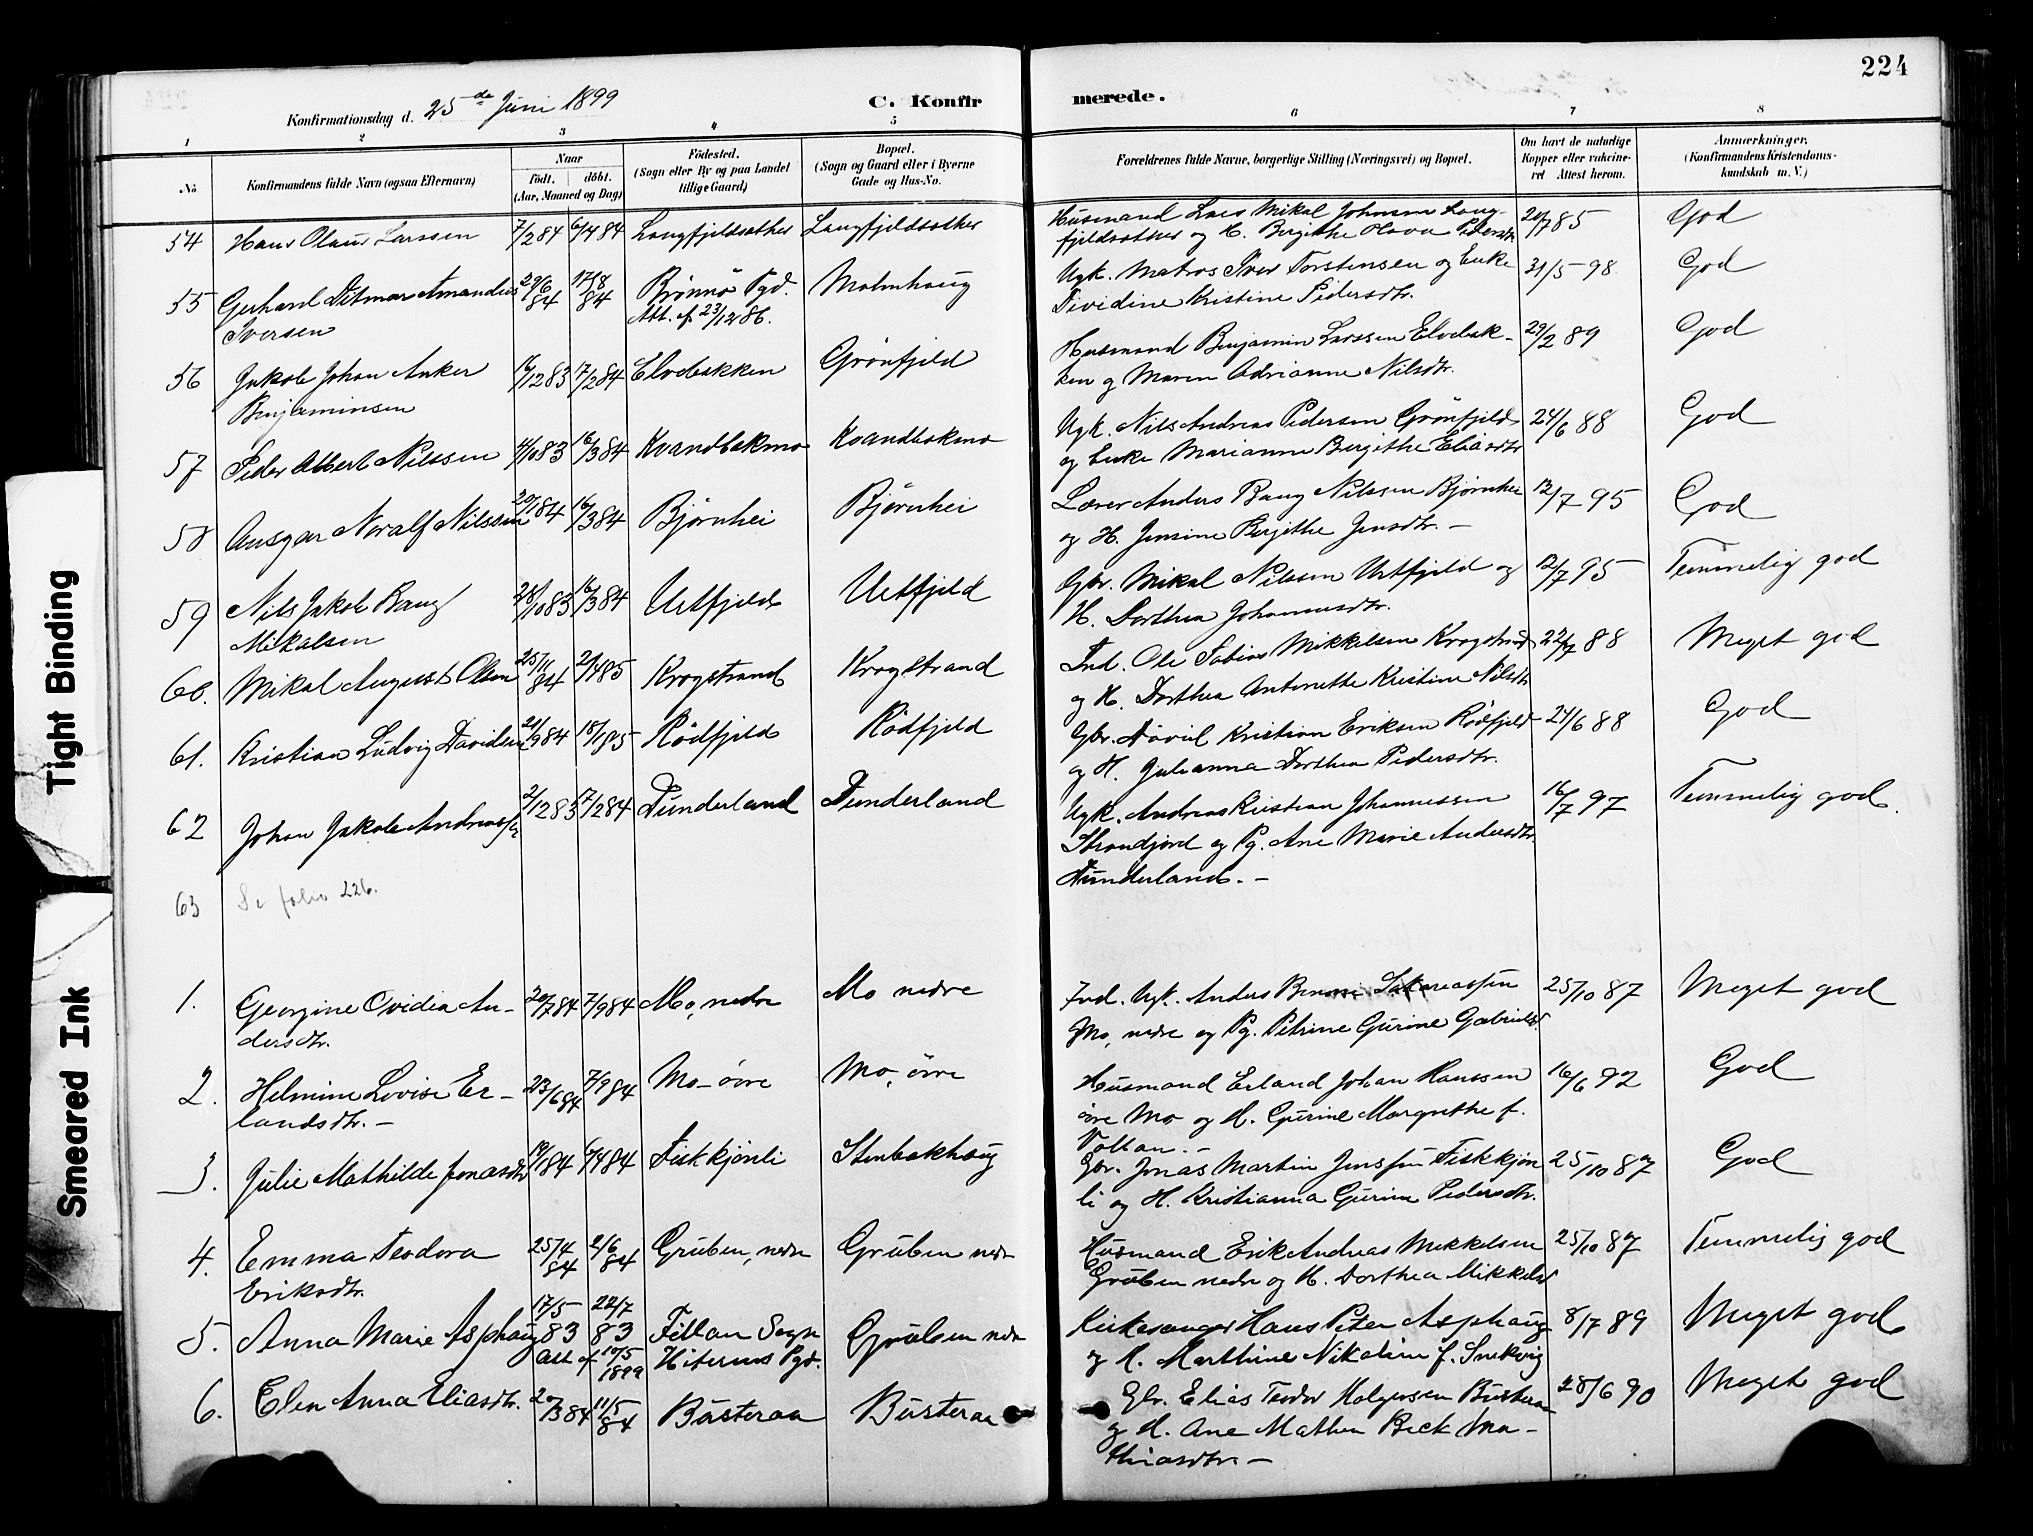 224
Konfirmationsdag d. 25de Juni 1899 C. Konfirmerede.
1 2 3 4 5 6 7 8
No
Konfirmandens fulde Navn (ogsaa Efternavn)
Naar
født. døbt.
(Aar, Maaned og Dag)
Födested.
(Sogn eller By og paa Landet
tillige Gaard)
Bopæl.
(Sogn og Gaard eller i Byerne
Gade og Hus-No.
Forældrenes fulde Navne, borgerlige Stilling (Næringsvei) og Bopæl.
Om havt de naturlige
Kopper eller vakcine-
ret Attest herom.
Anmærkninger.
(Konfirmandens Kristendoms-
kundskab m. V.)
54 Hans Olaus Larssen 7/2 84 6/4 84 Langfjeldsæther Langfjeldsæther Husmand Lars Mikal Johnsen Lang- 85 God
fjeldsæther og H. Birgithe Pedersdtr.
55 Gerhard Ditmar Amandus 29/6 84 17/8 84 Brønnø Pgd. Malmhaug Ugk. Matros Iver Torstensen og Enke 31/5 98 God
Iversen Att. af 23/12 86. Dividine Kristine Pedersdtr.
56 Jakob Johan Anker 83 17/2 84 Elvebakken Grønfjeld Husmand Benjamin Larssen Elvebak- 29/2 89 God
Benjaminsen ken og Maren Adrianne Nilsdtr.
57 Peder Albert Nilssen 4/10 83 16/3 84 Kvandbekmo Kvandbekmo Ugk. Nils Andreas Pedersen Grønfjeld 24/6 88 God
og Enke Marianne Bergithe Eliasdtr
58 Ansgar Noralf Nilssen 20/1 84 16/3 84 Bjørnhei Bjørnhei Lærer Anders Bang Nilssen Bjørnhei 12/7 95 God
og H. Jensine Bergithe Jensdtr. —
59 Nils Jakob Bang 28/10 83 16/3 84 Urtfjeld Urtfjeld Gbr. Mikal Nilssen Urtfjeld og 12/7 95 Temmelig god
Mikalsen H. Dorthea Johannesdtr.
60. Mikal August Olsen 25/11 84 2/4 85 Krogstrand Krogstrand Ind. Ole Tobias Mikkelsen Krogstrand 22/7 88 Meget god
og H. Dorthea Antonette Kristine Nilsdtr
61. Kristian Ludvig Davidsen 21/9 84 18/1 85 Rødfjeld Rødfjeld Gbr. David Kristian Eriksen Rødfjeld 24/6 88 God
og H. Julianna Dorthea Pedersdtr.
62 Johan Jakob Andreas 2/12 83 17/2 84 Dunderland Dunderland Ugk. Andreas Kristian Johannessen 16/7 97 Temmelig god.
Strandjord og Pg. Ane Marie Andersdtr.
Dunderland. —
63 Se folio 226.
1. Georgine Ovidia An- 20/7 84 7/9 84 Mo, nedre Mo nedre Ind. Ugk. Anders Sakariassen 25/10 87 Meget god
dersdtr. Mo, nedre og Pg. Petrine Gurine Gabrielsd
2. Helmine Lovise Er- 23/6 84 7/9 84 Mo- övre Mo, övre Husmand Erland Johan Hanssen 16/6 92 God
landsdtr. — övre Mo og H. Gurine Margrethe f.
Voltan. —
3. Julie Mathilde Jonasdtr 84 6/4 84 Fiskkjönli Stenbakhaug Gbr. Jonas Martin Jenssen Fiskkjön 25/10 87 God
li og H. Kristianna Gurine Pedersdtr.
4. Emma Teodora 25/4 84 2/6 84 Gruben, nedre Gruben nedr Husmand Erik Andreas Mikkelsen 25/10 87 Temmelig god
Eriksdtr. Gruben nedre og H. Dorthea Mikkelsd
5. Anna Marie Asphaug 17/5 83 22/7 83 Fillan Sogn Gruben nedr Kirkesanger Hans Peter Asphaug 8/7 89 Meget god
Att. af 10/5 1899 Hiterens Pgd. og H. Marthine Nikoline f. Snekvig
6. Elen Anna Eliasdtr. 20/3 84 11/5 84 Busteraa Busteraa Gbr. Elias Teodor Holgersen Busteraa 28/6 90 Meget god
og H. Ane Mathea Beck Ma-
thiasdtr. —
Tight Binding
Smeared Ink